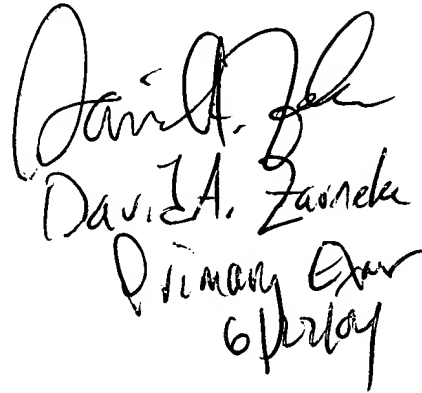 David A. Zarneke
David A. Zarneke
Primary Exam
6/12/04